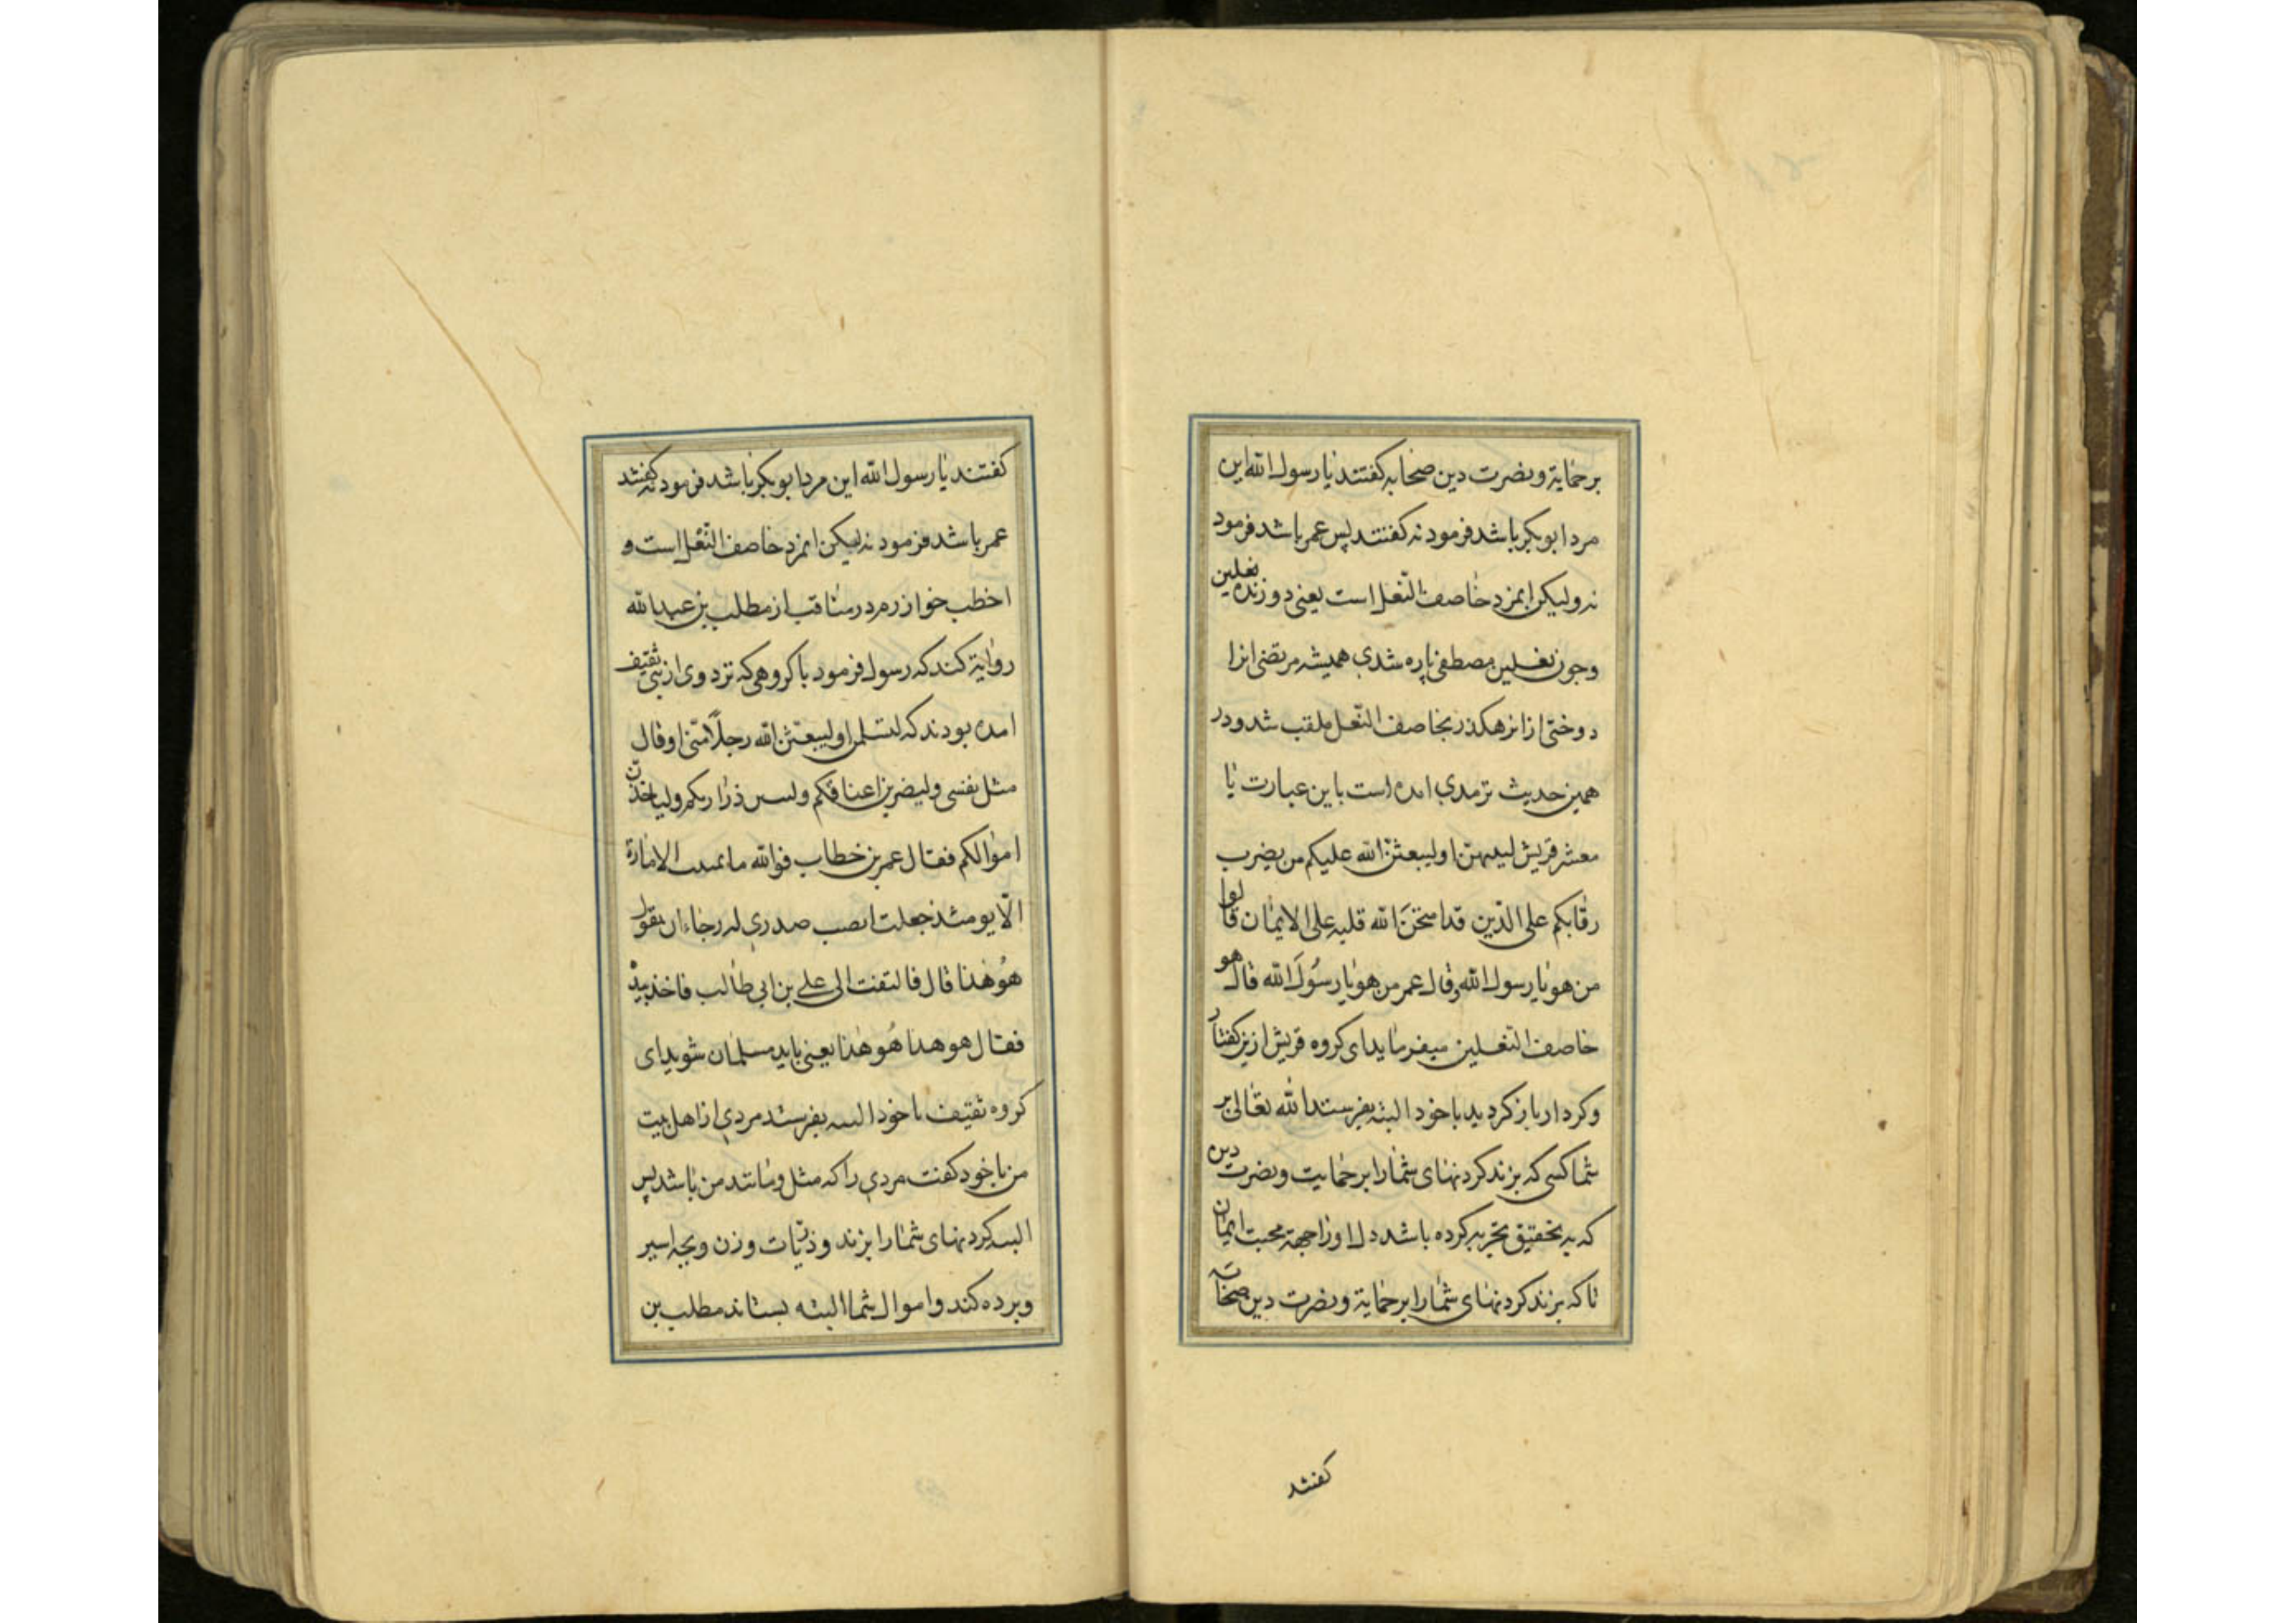 بر حمایة و نصرت دین صحابه کفتند یا رسول الله این
مرد ابو بکر باشد فرمود نه کفتند پس عمر باشد فرمود
نه ولیکن ایمرد خاصف النّعل است یعنی دوزنده نعلین
وچون نعلین مصطفی پاره شدی همیشه مرتضی انرا
دوختی از انرهکذر بخاصف النّعل ملقب شد ودر
همین حدیث ترمدی امده است باین عبارت یا
معشر قریش لیتهنّ اولیبعثنّ الله علیکم من یضرب
رقابکم علی الدّین قد امتحنَ الله قلبه علی الایمان قالوا
من هو یا رسول الله وقال عمر من هو یا رسُولَ الله قال هو
خاصف النّعلین میفرماید ای کروه قریش ازین کفتار
وکردار باز کردید یا خود البته بفرستد الله تعالی بر
شما کسی که بزند کردنهای شمارا بر حمایت ونصرت دین
که به تحقیق تجربه کرده باشد دل اوزا جهة محبت ایمان
تا که بزند کردنهای شمارا بر حمایة ونصرت دین صحابه
کفتند
کفتند یا رسول الله این مرد ابو بکر باشد فرمود نه کفتند
عمر باشد فرمود نه لیکن ایمرد خاصف النّعل است و
اخطب خوارزم در مناقب از مطلب بن عبدالله
روایة کند که رسول فرمود با کروهی که نزد وی از بنی ثقیف
امده بودند که لتسلمن اولیبعثنّ الله رجلاً منّی اوقال
مثل نفسی ولیضربن اعناقکم ولیسبین ذراریکم ولیاخذنّ
اموالکم فقال عمر بن خطاب فوالله ما تمنیت الامارة
الّا یومئذ جعلت انصب صدری له رجاء ان یقول
هُو هذا قال فالتفت الی علی بن ابی طالب فاخذ بیده
فقال هو هذا هُو هذا یعنی باید مسلمان شوید ای
کروه ثقیف یا خود البته بفرستد مردی از اهل بیت
من یا خود کفت مردی را که مثل ومانند من باشد پس
البته کردنهای شمارا بزند وذرّیات وزن وبچه اسیر
وبرده کند واموال شما البته بستاند مطلب بن